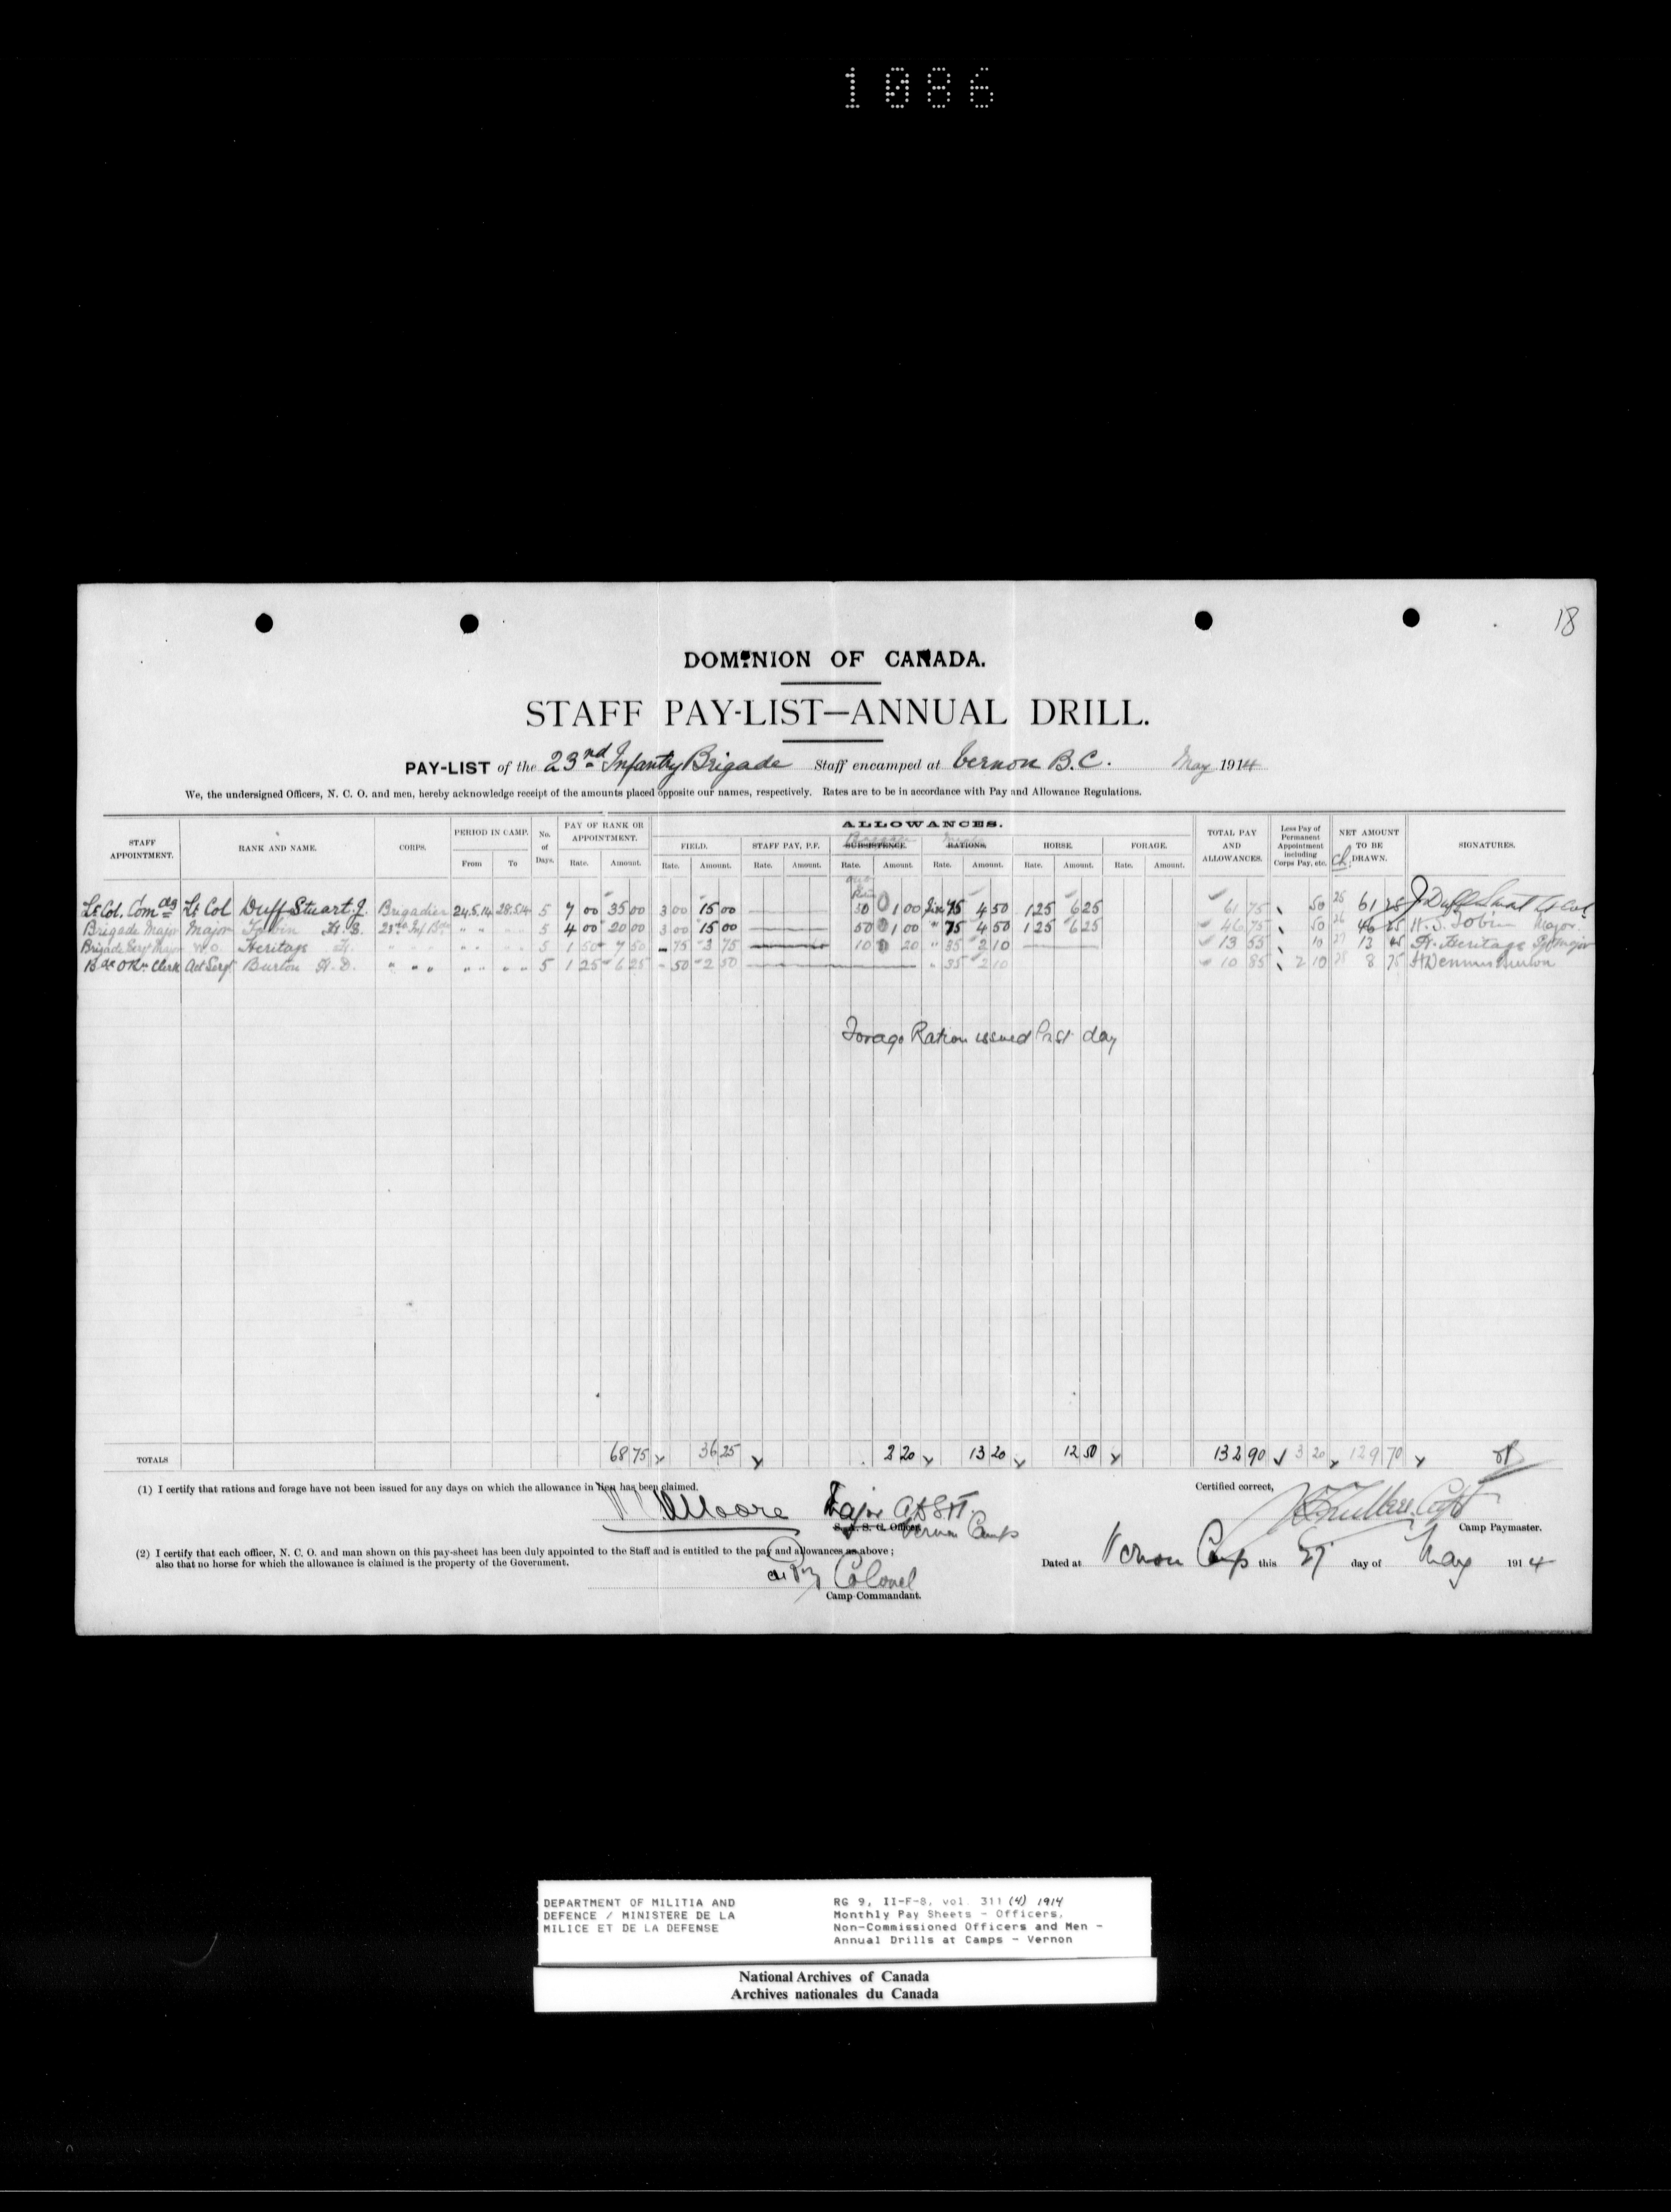 1086
18
DOMINION OF CANADA.
STAFF PAY-LIST—ANNUAL DRILL.
PAY-LIST of the 23nd Infantry Brigade Staff encamped at Vernon B.C. May 1914
We, the undersigned Officers, N. C. O. and men, hereby acknowledge receipt of the amounts placed opposite our names, respectively. Rates are to be in accordance with Pay and Allowance Regulations.
STAFF APPOINTMENT. RANK AND NAME. CORPS. PERIOD IN CAMP. No. of Days. PAY OF RANK OR APPOINTMENT. ALLOWANCES. TOTAL PAY AND ALLOWANCES. Less Pay of Permanent Appointment including Corps Pay, etc. NET AMOUNT TO BE DRAWN. SIGNATURES.
FIELD. STAFF PAY, P.F. SUBSISTENCE. RATIONS. HORSE. FORAGE.
From To Rate. Amount. Rate. Amount. Rate. Amount. Rate. Amount. Rate. Amount. Rate. Amount. Rate. Amount. Ch.
Lt Col. Comdg Lt Col Duff Stuart. J. Brigadier 24.5.14 28.5.14 5 7 00 35 00 3 00 15 00 50 1 00 Six 75 4 50 1 25 6 25 61 75 50 25 61 25 J Duff Stuart Lt Col
Brigade Major Major Tobin H. S. 23rd Inf Bde " " " " 5 4 00 20 00 3 00 15 00 50 1 00 " 75 4 50 1 25 6 25 46 75 50 26 46 25 H. S. Tobin Major
Brigade Sergt Major W.O. Heritage F. " " " " " " 5 1 50 7 50 75 3 75 10 20 " 35 2 10 13 55 10 27 13 45 Heritage Sgt Major
Bde ORm Clerk Act Sergt Burton H. D. " " " " " " " 5 1 25 6 25 50 2 50 " 35 2 10 10 85 2 10 28 8 75 H Dennis Burton
Forage Ration issued first day
TOTALS 68 75 36 25 2 20 13 20 12 50 132 90 3 20 129 70
(1) I certify that rations and forage have not been issued for any days on which the allowance in lieu has been claimed.
Moore Major
S. A. S. C. Officer
Vernon Camp
Certified correct,
Camp Paymaster.
(2) I certify that each officer, N. C. O. and man shown on this pay-sheet has been duly appointed to the Staff and is entitled to the pay and allowances as above;
also that no horse for which the allowance is claimed is the property of the Government.
Colonel
Camp Commandant.
Dated at Vernon Camp this 27 day of May 1914
DEPARTMENT OF MILITIA AND
DEFENCE / MINISTERE DE LA
MILICE ET DE LA DEFENSE
RG 9, II-F-8, vol. 311 (4) 1914
Monthly Pay Sheets - Officers,
Non-Commissioned Officers and Men -
Annual Drills at Camps - Vernon
National Archives of Canada
Archives nationales du Canada